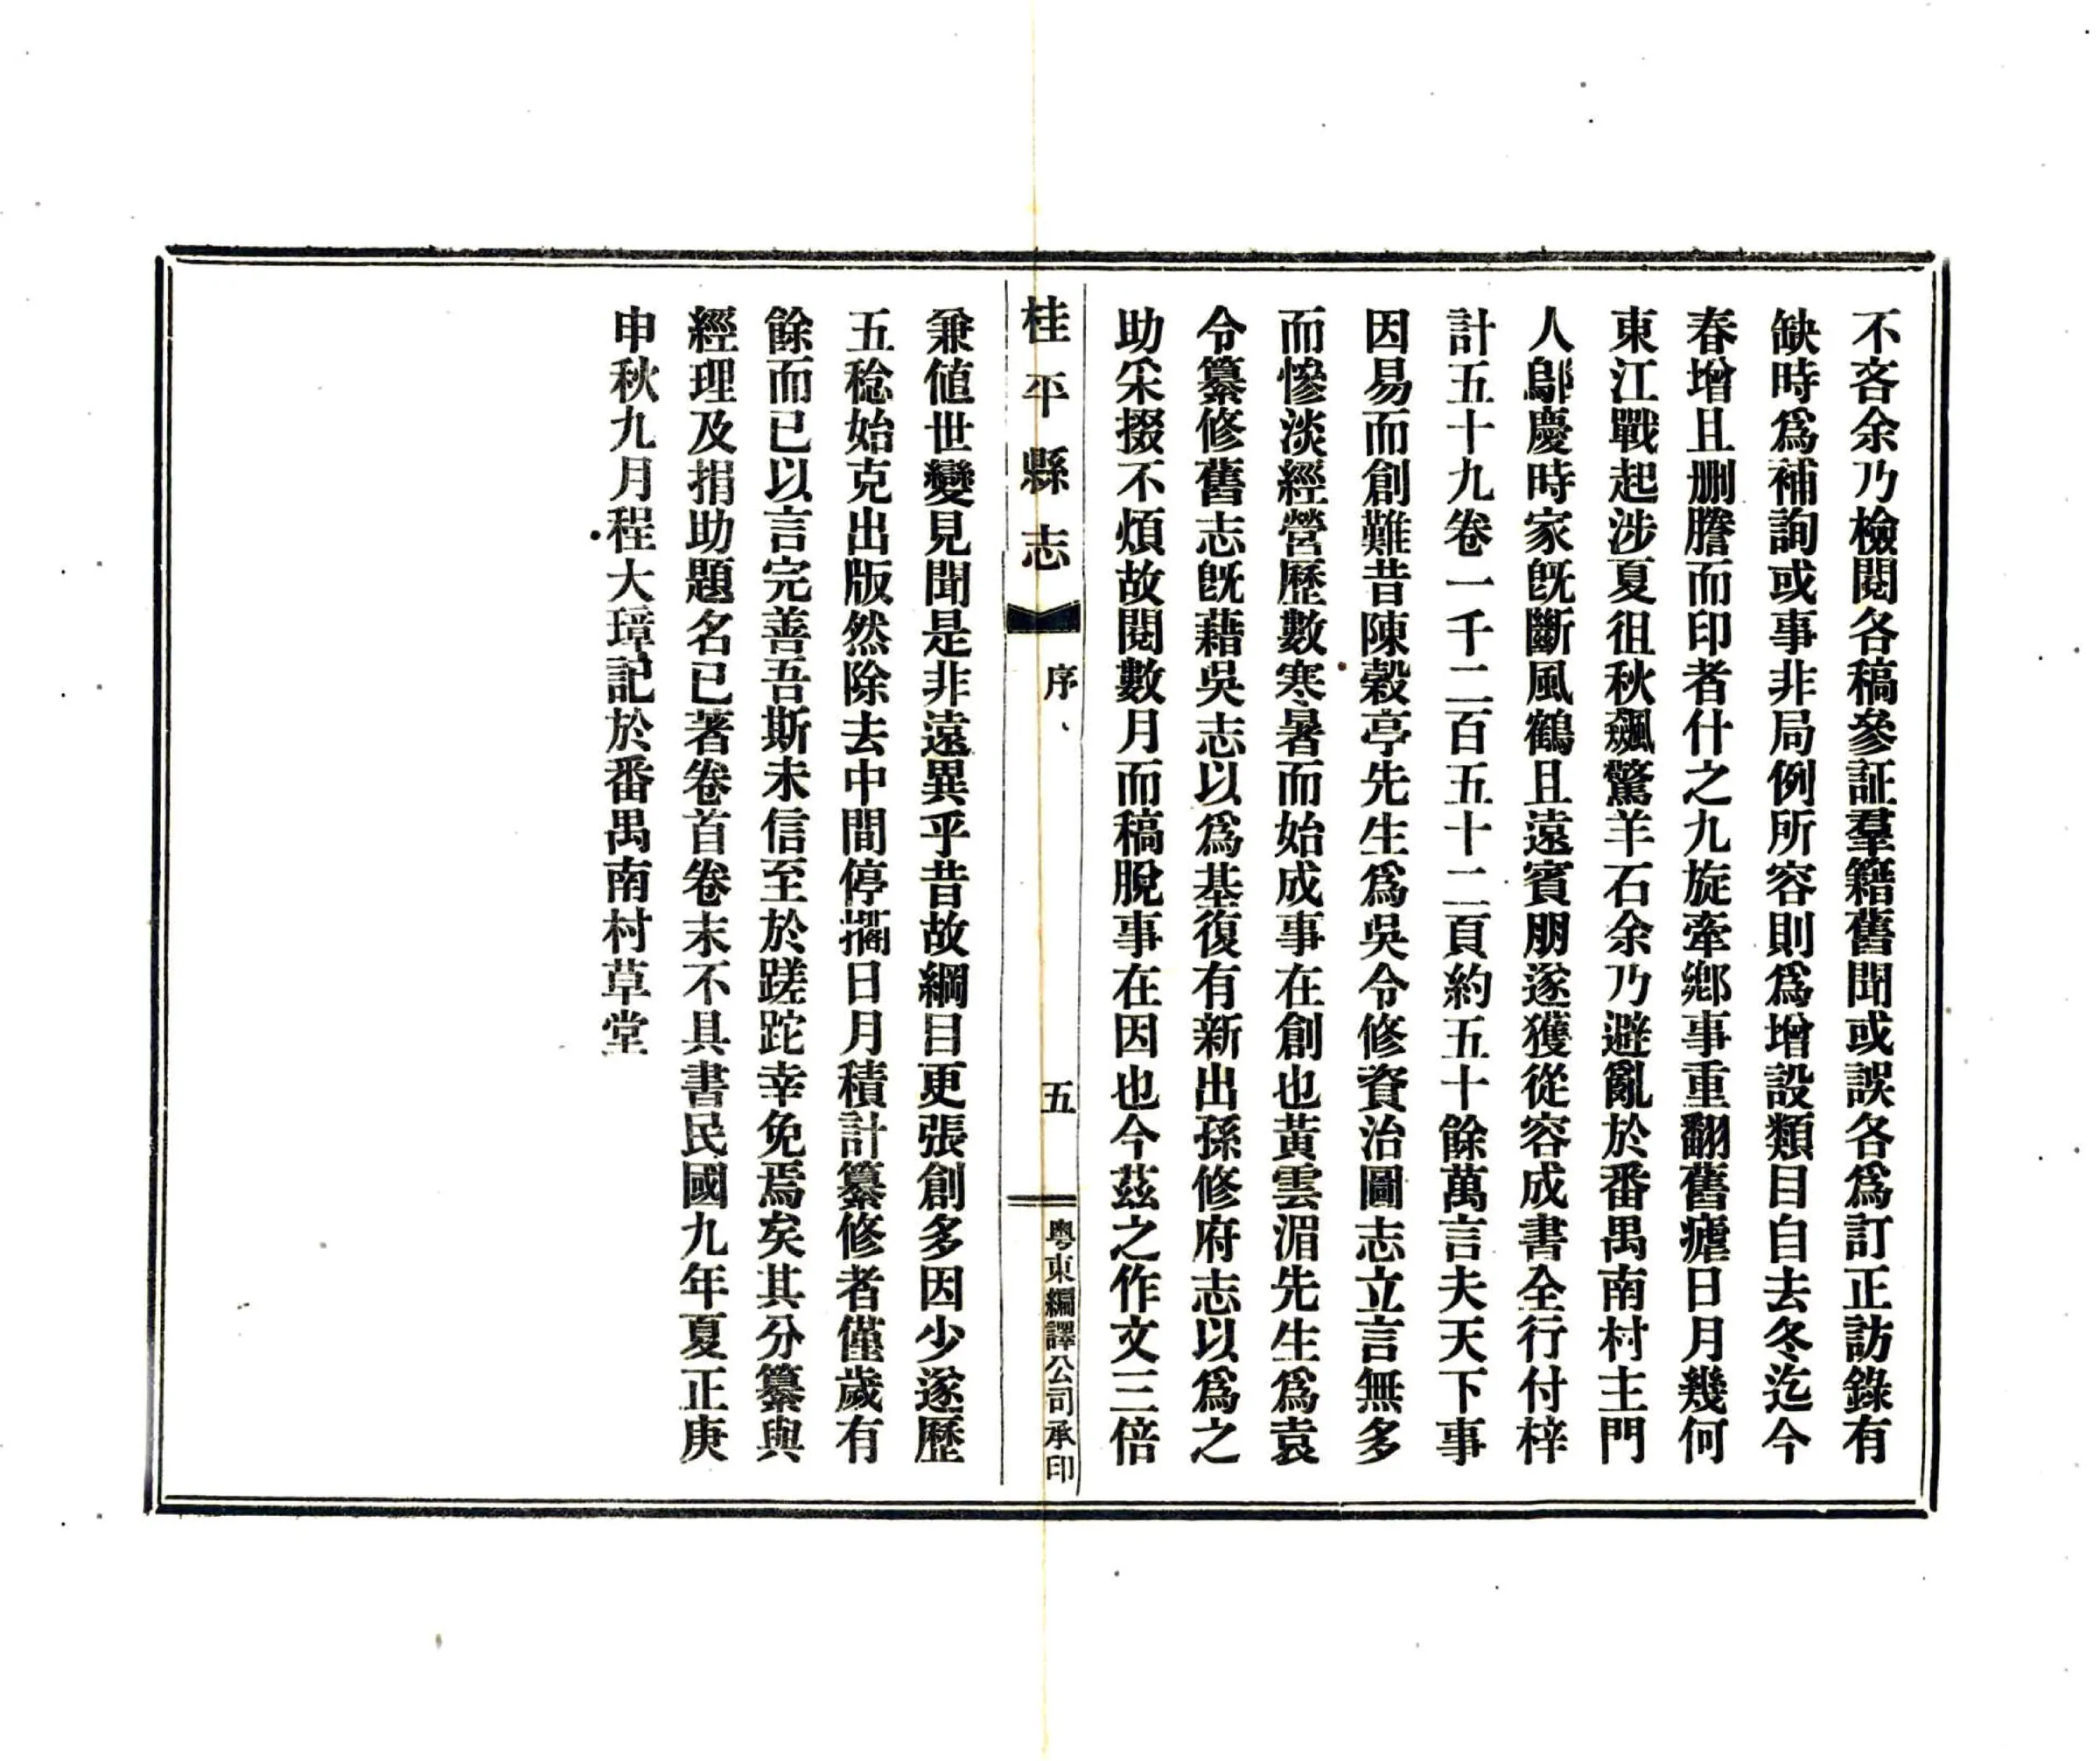 不吝余乃檢閱各稿參証羣籍舊聞或誤各爲訂正訪錄有
缺時爲補詢或事非局例所容則爲增設類目自去冬迄今
春增且删謄而印者什之九旋牽鄉事重翻舊瘧日月幾何
東江戰起涉夏徂秋飆驚羊石余乃避亂於番禺南村主門
人鄔慶時家旣斷風鶴且遠賓朋遂獲從容成書全行付梓
計五十九卷一千二百五十二頁約五十餘萬言夫天下事
因易而創難昔陳榖亭先生爲吳令修資治圖志立言無多
而慘淡經營歷數寒暑而始成事在創也黃雲湄先生爲袁
令纂修舊志旣藉吳志以爲基復有新出孫修府志以爲之
助采掇不煩故閱數月而稿脫事在因也今茲之作文三倍
桂平縣志
序
五
粵東編譯公司承印
兼値世變見聞是非遠異乎昔故綱目更張創多因少遂歷
五稔始克出版然除去中間停擱日月積計纂修者僅歲有
餘而已以言完善吾斯未信至於蹉跎幸免焉矣其分纂與
經理及捐助題名已著卷首卷末不具書民國九年夏正庚
申秋九月程大璋記於番禺南村草堂